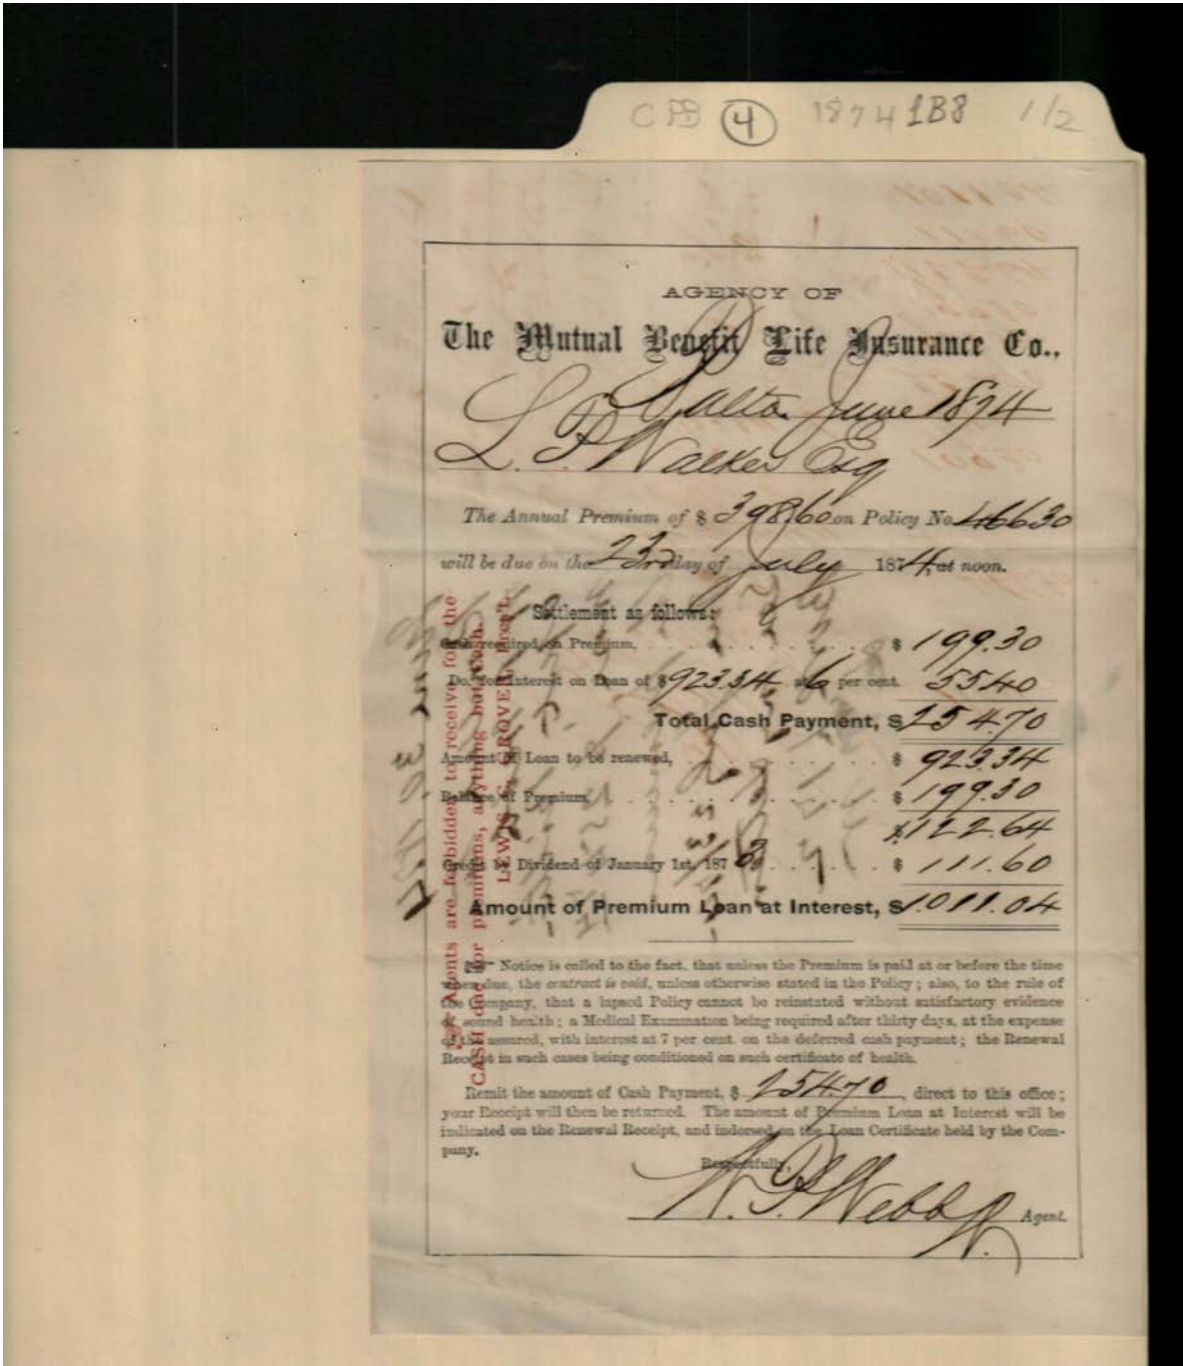 CPB 4 1874 1B8 1/2
AGENCY OF
The Mutual Benefit Life Insurance Co.,
Balto. June 1874
L. P. Walker Esq
The Annual Premium of $ 398.60 on Policy No. 46630
will be due on the 23rd day of July 1874, at noon.
Settlement as follows:
Cash required on Premium, $ 199.30
Do. for Interest on Loan of $ 923.34 at 6 per cent. 55.40
Total Cash Payment, $ 254.70
Amount of Loan to be renewed, $ 923.34
Balance of Premium, $ 199.30
1.122.64
Credit by Dividend of January 1st, 1873 $ 111.60
Amount of Premium Loan at Interest, $ 1.011.04
Notice is called to the fact, that unless the Premium is paid at or before the time
when due, the contract is void, unless otherwise stated in the Policy; also, to the rule of
the Company, that a lapsed Policy cannot be reinstated without satisfactory evidence
of sound health; a Medical Examination being required after thirty days, at the expense
of the assured, with interest at 7 per cent. on the deferred cash payment; the Renewal
Receipt in such cases being conditioned on such certificate of health.
Remit the amount of Cash Payment, $ 254.70, direct to this office;
your Receipt will then be returned. The amount of Premium Loan at Interest will be
indicated on the Renewal Receipt, and indorsed on the Loan Certificate held by the Com-
pany.
Respectfully,
W. P. Webb Agent.
Agents are forbidden to receive for the
CASH due for premiums, anything but Cash.
LEWIS C. GROVER, Pres't.